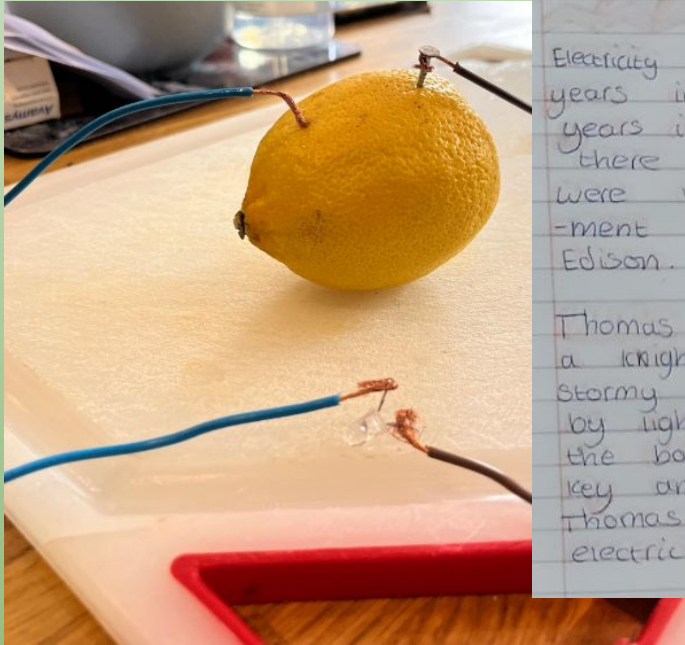 Avamys
Electricity
years i
years i
there
were
-ment
Edison.
Thomas
a knigh
stormy
by ligh
the ba
key an
Thomas
electric